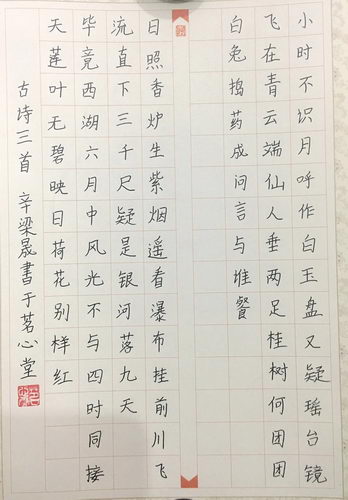 小时不识月呼作白玉盘又疑瑶台镜
飞在青云端仙人垂两足桂树何团团
白兔捣药成问言与堆餐
日照香炉生紫烟遥看瀑布挂前川飞
流直下三千尺疑是银河落九天
毕竟西湖六月中风光不与四时同接
天莲叶无碧映日荷花别样红
古诗三首 辛梁晟書于茗心堂